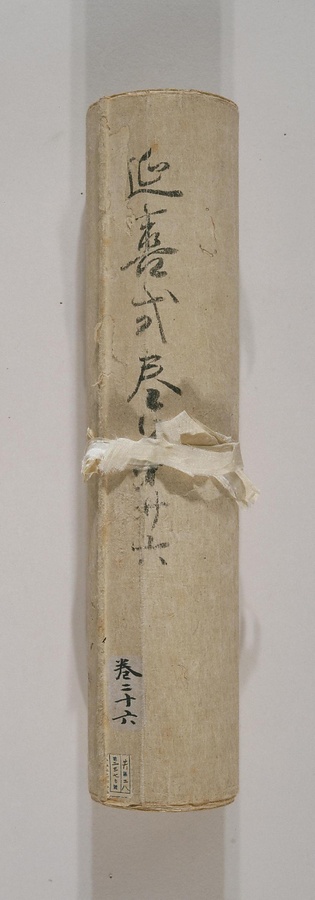 延喜式巻第廿六
巻二十六